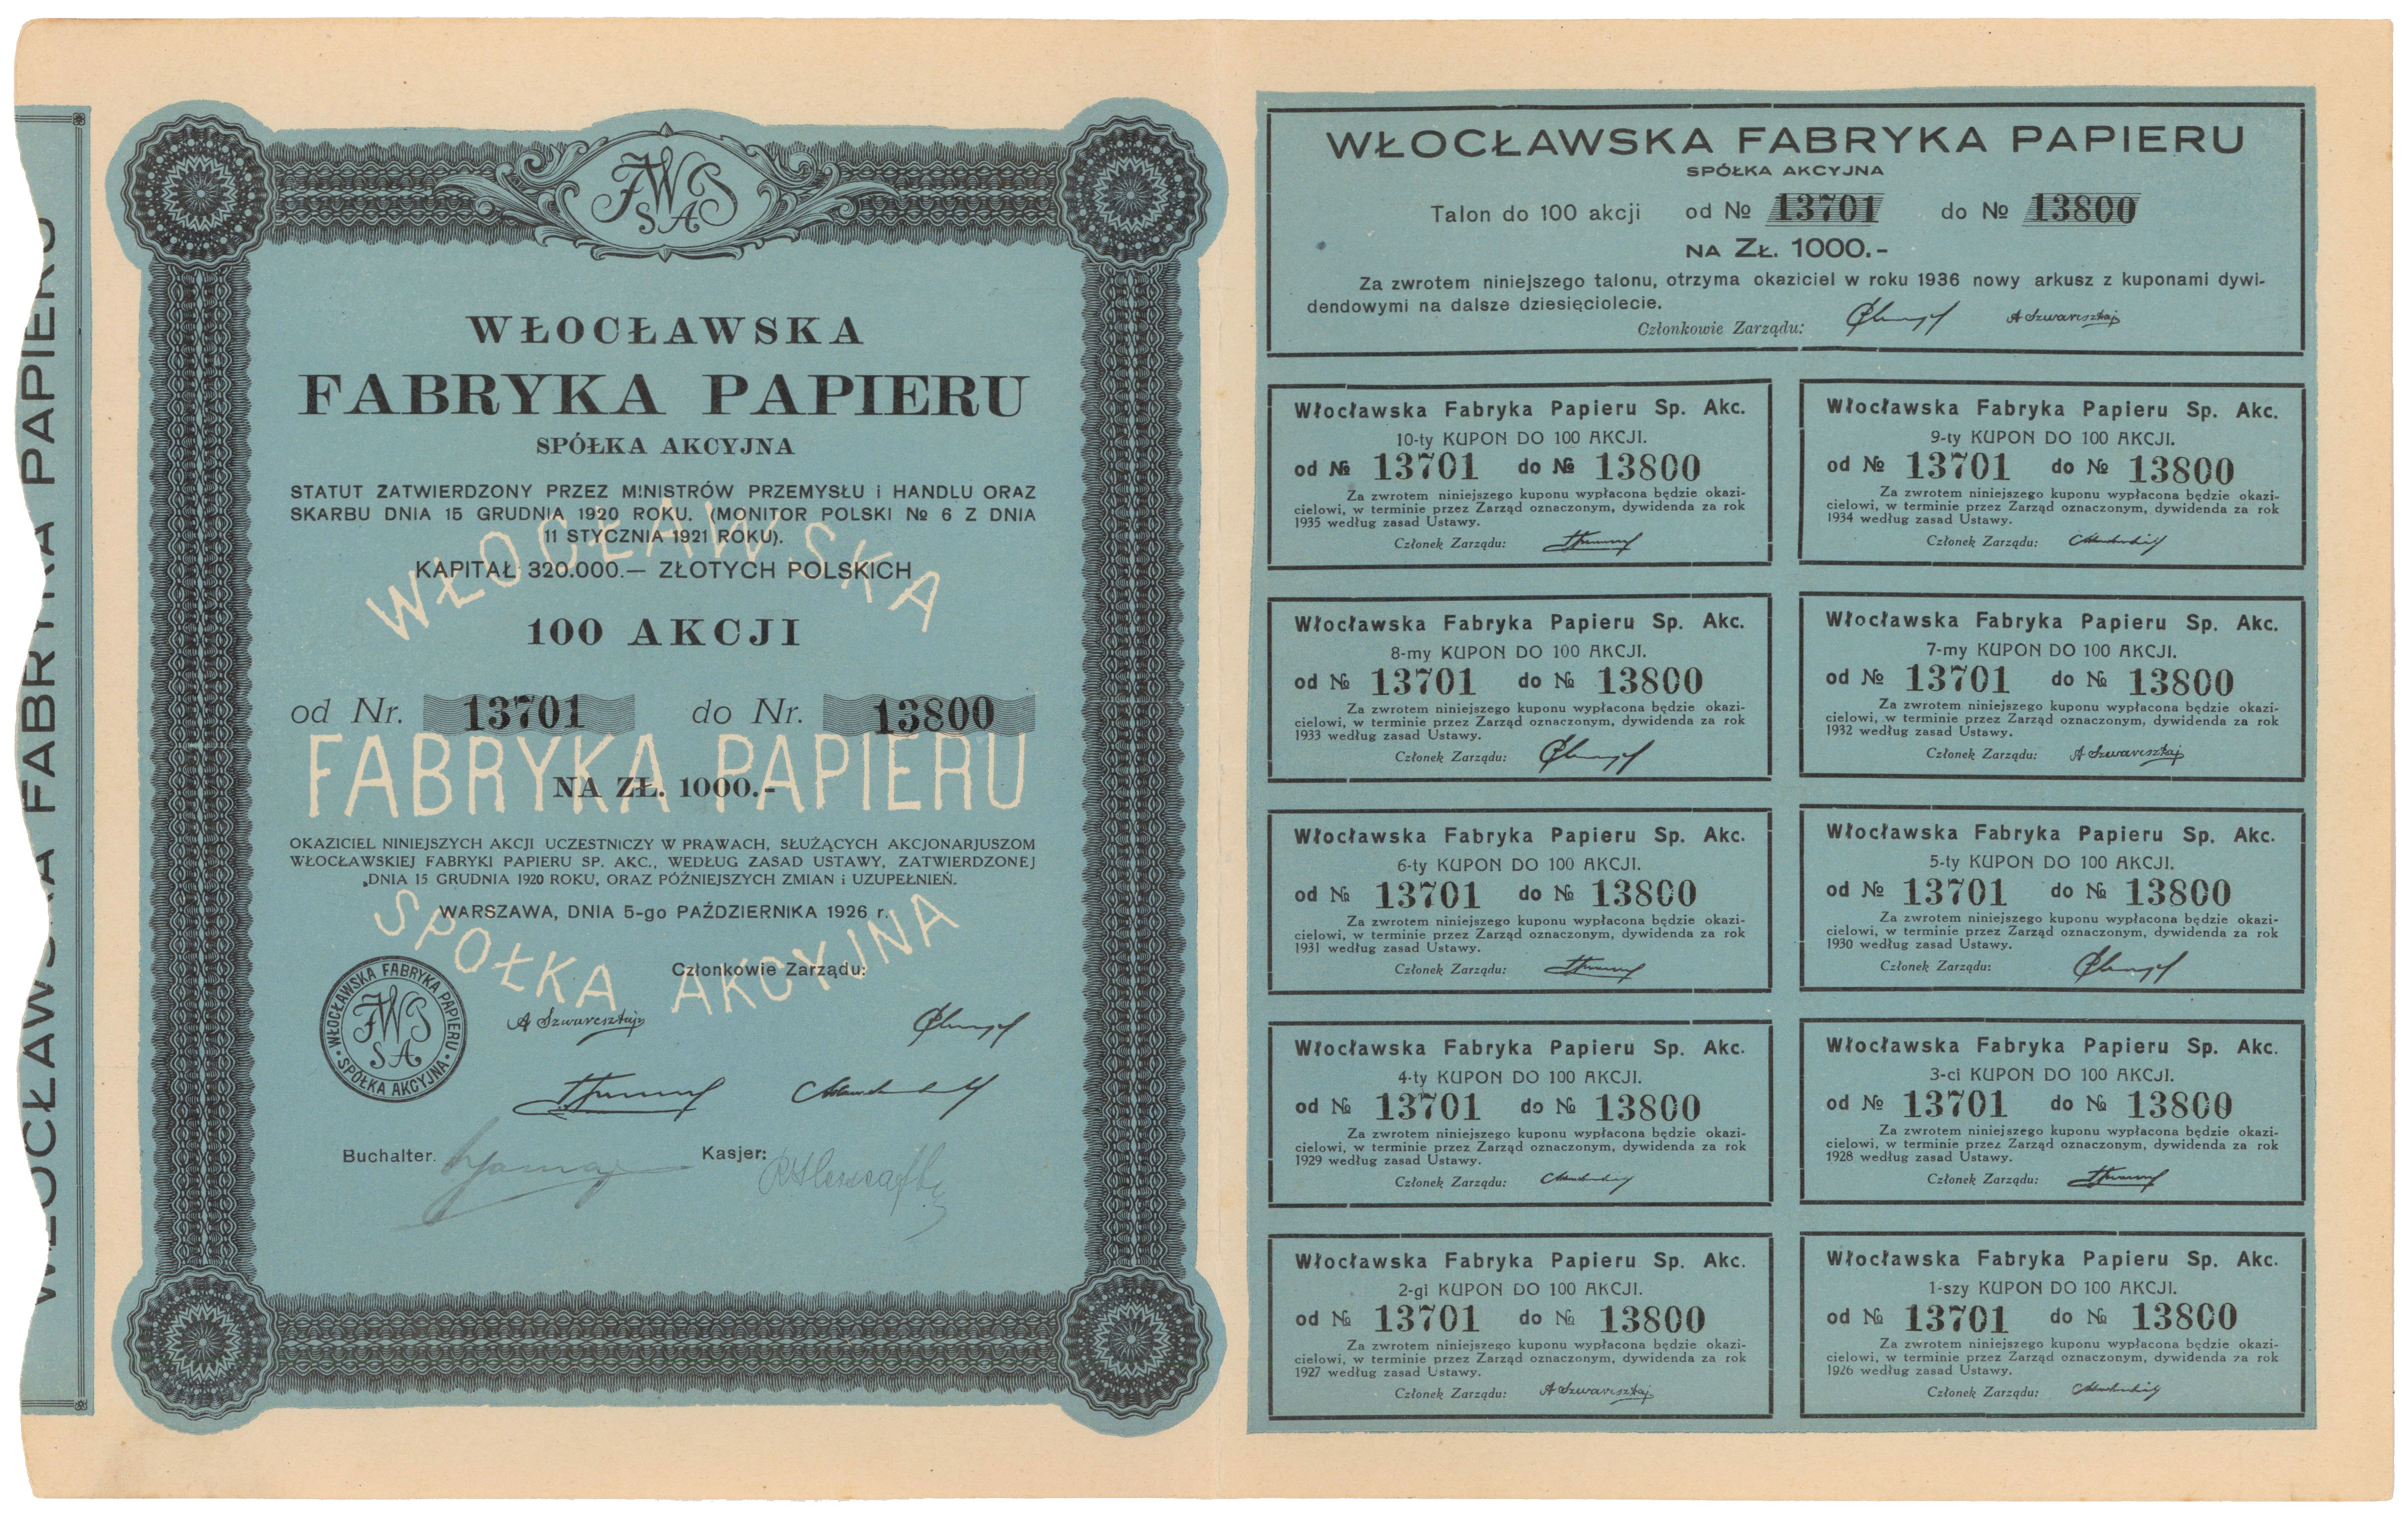 WŁOCŁAWSKA FABRYKA PAPIERU
WŁOCŁAWSKA
FABRYKA PAPIERU
SPÓŁKA AKCYJNA
STATUT ZATWIERDZONY PRZEZ MINISTRÓW PRZEMYSŁU i HANDLU ORAZ
SKARBU DNIA 15 GRUDNIA 1920 ROKU. (MONITOR POLSKI № 6 Z DNIA
11 STYCZNIA 1921 ROKU).
KAPITAŁ 320.000.— ZŁOTYCH POLSKICH
WŁOCŁAWSKA
100 AKCJI
od Nr. 13701 do Nr. 13800
FABRYKA PAPIERU
NA ZŁ. 1000.-
OKAZICIEL NINIEJSZYCH AKCJI UCZESTNICZY W PRAWACH, SŁUŻĄCYCH AKCJONARJUSZOM
WŁOCŁAWSKIEJ FABRYKI PAPIERU SP. AKC., WEDŁUG ZASAD USTAWY, ZATWIERDZONEJ
DNIA 15 GRUDNIA 1920 ROKU, ORAZ PÓŹNIEJSZYCH ZMIAN i UZUPEŁNIEŃ.
SPÓŁKA AKCYJNA
WARSZAWA, DNIA 5-go PAŹDZIERNIKA 1926 r.
Członkowie Zarządu:
WŁOCŁAWSKA FABRYKA PAPIERU
SPÓŁKA AKCYJNA
A Szwarcsztajn
Buchalter.
Kasjer:
WŁOCŁAWSKA FABRYKA PAPIERU
SPÓŁKA AKCYJNA
Talon do 100 akcji od № 13701 do № 13800
NA ZŁ. 1000.-
Za zwrotem niniejszego talonu, otrzyma okaziciel w roku 1936 nowy arkusz z kuponami dywi-
dendowymi na dalsze dziesięciolecie.
Członkowie Zarządu:
A Szwarcsztajn
Włocławska Fabryka Papieru Sp. Akc.
10-ty KUPON DO 100 AKCJI.
od № 13701 do № 13800
Za zwrotem niniejszego kuponu wypłacona będzie okazi-
cielowi, w terminie przez Zarząd oznaczonym, dywidenda za rok
1935 według zasad Ustawy.
Członek Zarządu:
Włocławska Fabryka Papieru Sp. Akc.
9-ty KUPON DO 100 AKCJI.
od № 13701 do № 13800
Za zwrotem niniejszego kuponu wypłacona będzie okazi-
cielowi, w terminie przez Zarząd oznaczonym, dywidenda za rok
1934 według zasad Ustawy.
Członek Zarządu:
Włocławska Fabryka Papieru Sp. Akc.
8-my KUPON DO 100 AKCJI.
od № 13701 do № 13800
Za zwrotem niniejszego kuponu wypłacona będzie okazi-
cielowi, w terminie przez Zarząd oznaczonym, dywidenda za rok
1933 według zasad Ustawy.
Członek Zarządu:
Włocławska Fabryka Papieru Sp. Akc.
7-my KUPON DO 100 AKCJI.
od № 13701 do № 13800
Za zwrotem niniejszego kuponu wypłacona będzie okazi-
cielowi, w terminie przez Zarząd oznaczonym, dywidenda za rok
1932 według zasad Ustawy.
Członek Zarządu: A Szwarcsztajn
Włocławska Fabryka Papieru Sp. Akc.
6-ty KUPON DO 100 AKCJI.
od № 13701 do № 13800
Za zwrotem niniejszego kuponu wypłacona będzie okazi-
cielowi, w terminie przez Zarząd oznaczonym, dywidenda za rok
1931 według zasad Ustawy.
Członek Zarządu:
Włocławska Fabryka Papieru Sp. Akc.
5-ty KUPON DO 100 AKCJI.
od № 13701 do № 13800
Za zwrotem niniejszego kuponu wypłacona będzie okazi-
cielowi, w terminie przez Zarząd oznaczonym, dywidenda za rok
1930 według zasad Ustawy.
Członek Zarządu:
Włocławska Fabryka Papieru Sp. Akc.
4-ty KUPON DO 100 AKCJI.
od № 13701 do № 13800
Za zwrotem niniejszego kuponu wypłacona będzie okazi-
cielowi, w terminie przez Zarząd oznaczonym, dywidenda za rok
1929 według zasad Ustawy.
Członek Zarządu:
Włocławska Fabryka Papieru Sp. Akc.
3-ci KUPON DO 100 AKCJI.
od № 13701 do № 13800
Za zwrotem niniejszego kuponu wypłacona będzie okazi-
cielowi, w terminie przez Zarząd oznaczonym, dywidenda za rok
1928 według zasad Ustawy.
Członek Zarządu:
Włocławska Fabryka Papieru Sp. Akc.
2-gi KUPON DO 100 AKCJI.
od № 13701 do № 13800
Za zwrotem niniejszego kuponu wypłacona będzie okazi-
cielowi, w terminie przez Zarząd oznaczonym, dywidenda za rok
1927 według zasad Ustawy.
Członek Zarządu: A Szwarcsztajn
Włocławska Fabryka Papieru Sp. Akc.
1-szy KUPON DO 100 AKCJI.
od № 13701 do № 13800
Za zwrotem niniejszego kuponu wypłacona będzie okazi-
cielowi, w terminie przez Zarząd oznaczonym, dywidenda za rok
1926 według zasad Ustawy.
Członek Zarządu: